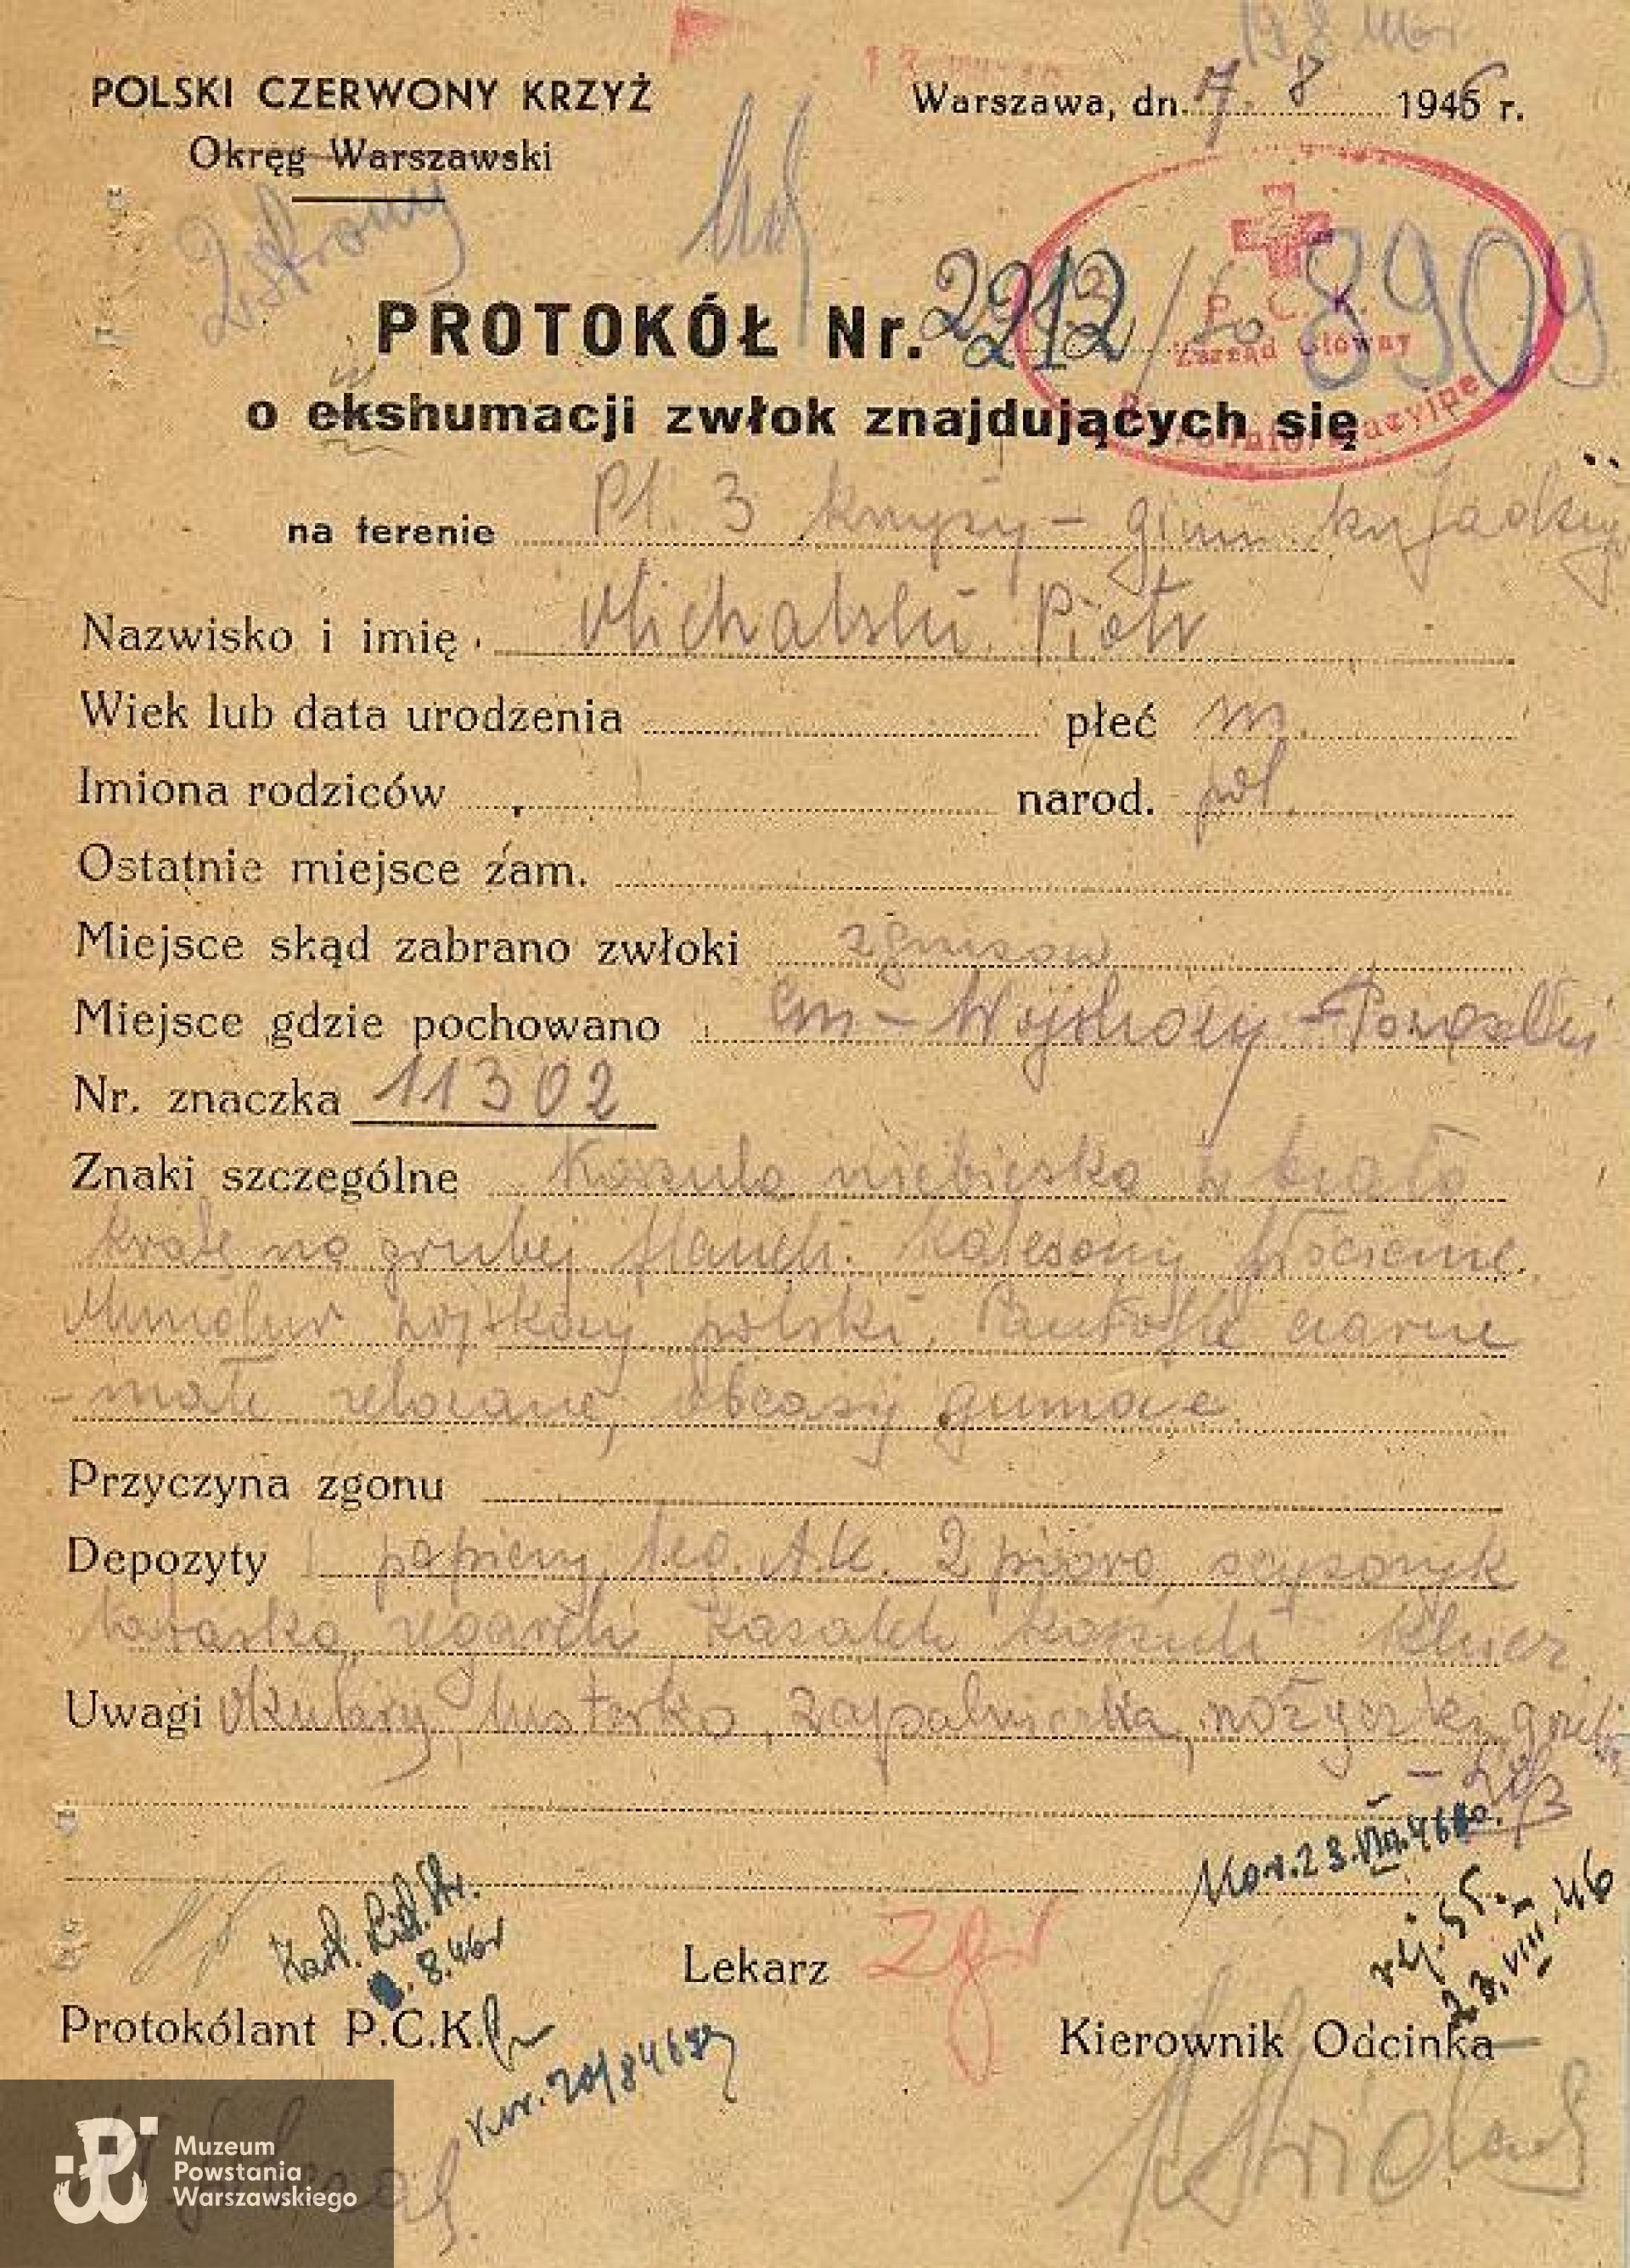 POLSKI CZERWONY KRZYŻ
Okręg Warszawski
Warszawa, dn. 7. 8 1946 r.
2 strony
P. C. K.
Zarząd Główny
PROTOKÓŁ Nr. 2212/ 8909
o ekshumacji zwłok znajdujących się
na terenie Pl. 3 krzyży - gimn. kr. Jadwigi
Nazwisko i imię Michalski Piotr
Wiek lub data urodzenia płeć m.
Imiona rodziców narod. pol.
Ostatnie miejsce zam.
Miejsce skąd zabrano zwłoki z gruzów
Miejsce gdzie pochowano cm - Wojskowy - Powązki
Nr. znaczka 11302
Znaki szczegölne Koszula niebieska w białą
kratę na grubej flaneli. Kalesony
Mundur wojskowy polski. Pantofle czarne
- małe zelowane, obcasy gumowe
Przyczyna zgonu
Depozyty papiery, leg. A.K. 2 pióra, scyzoryk
latarka, zegarek kawałek koszuli klucz
Uwagi Okulary, lusterko, zapalniczka, nożyczki, grzebień
23.VIII.46
rej. 55.
23.VIII.46
8.46r
Lekarz
Protokólant P.C.K.
Kierownik Odcinka
Muzeum
Powstania
Warszawskiego